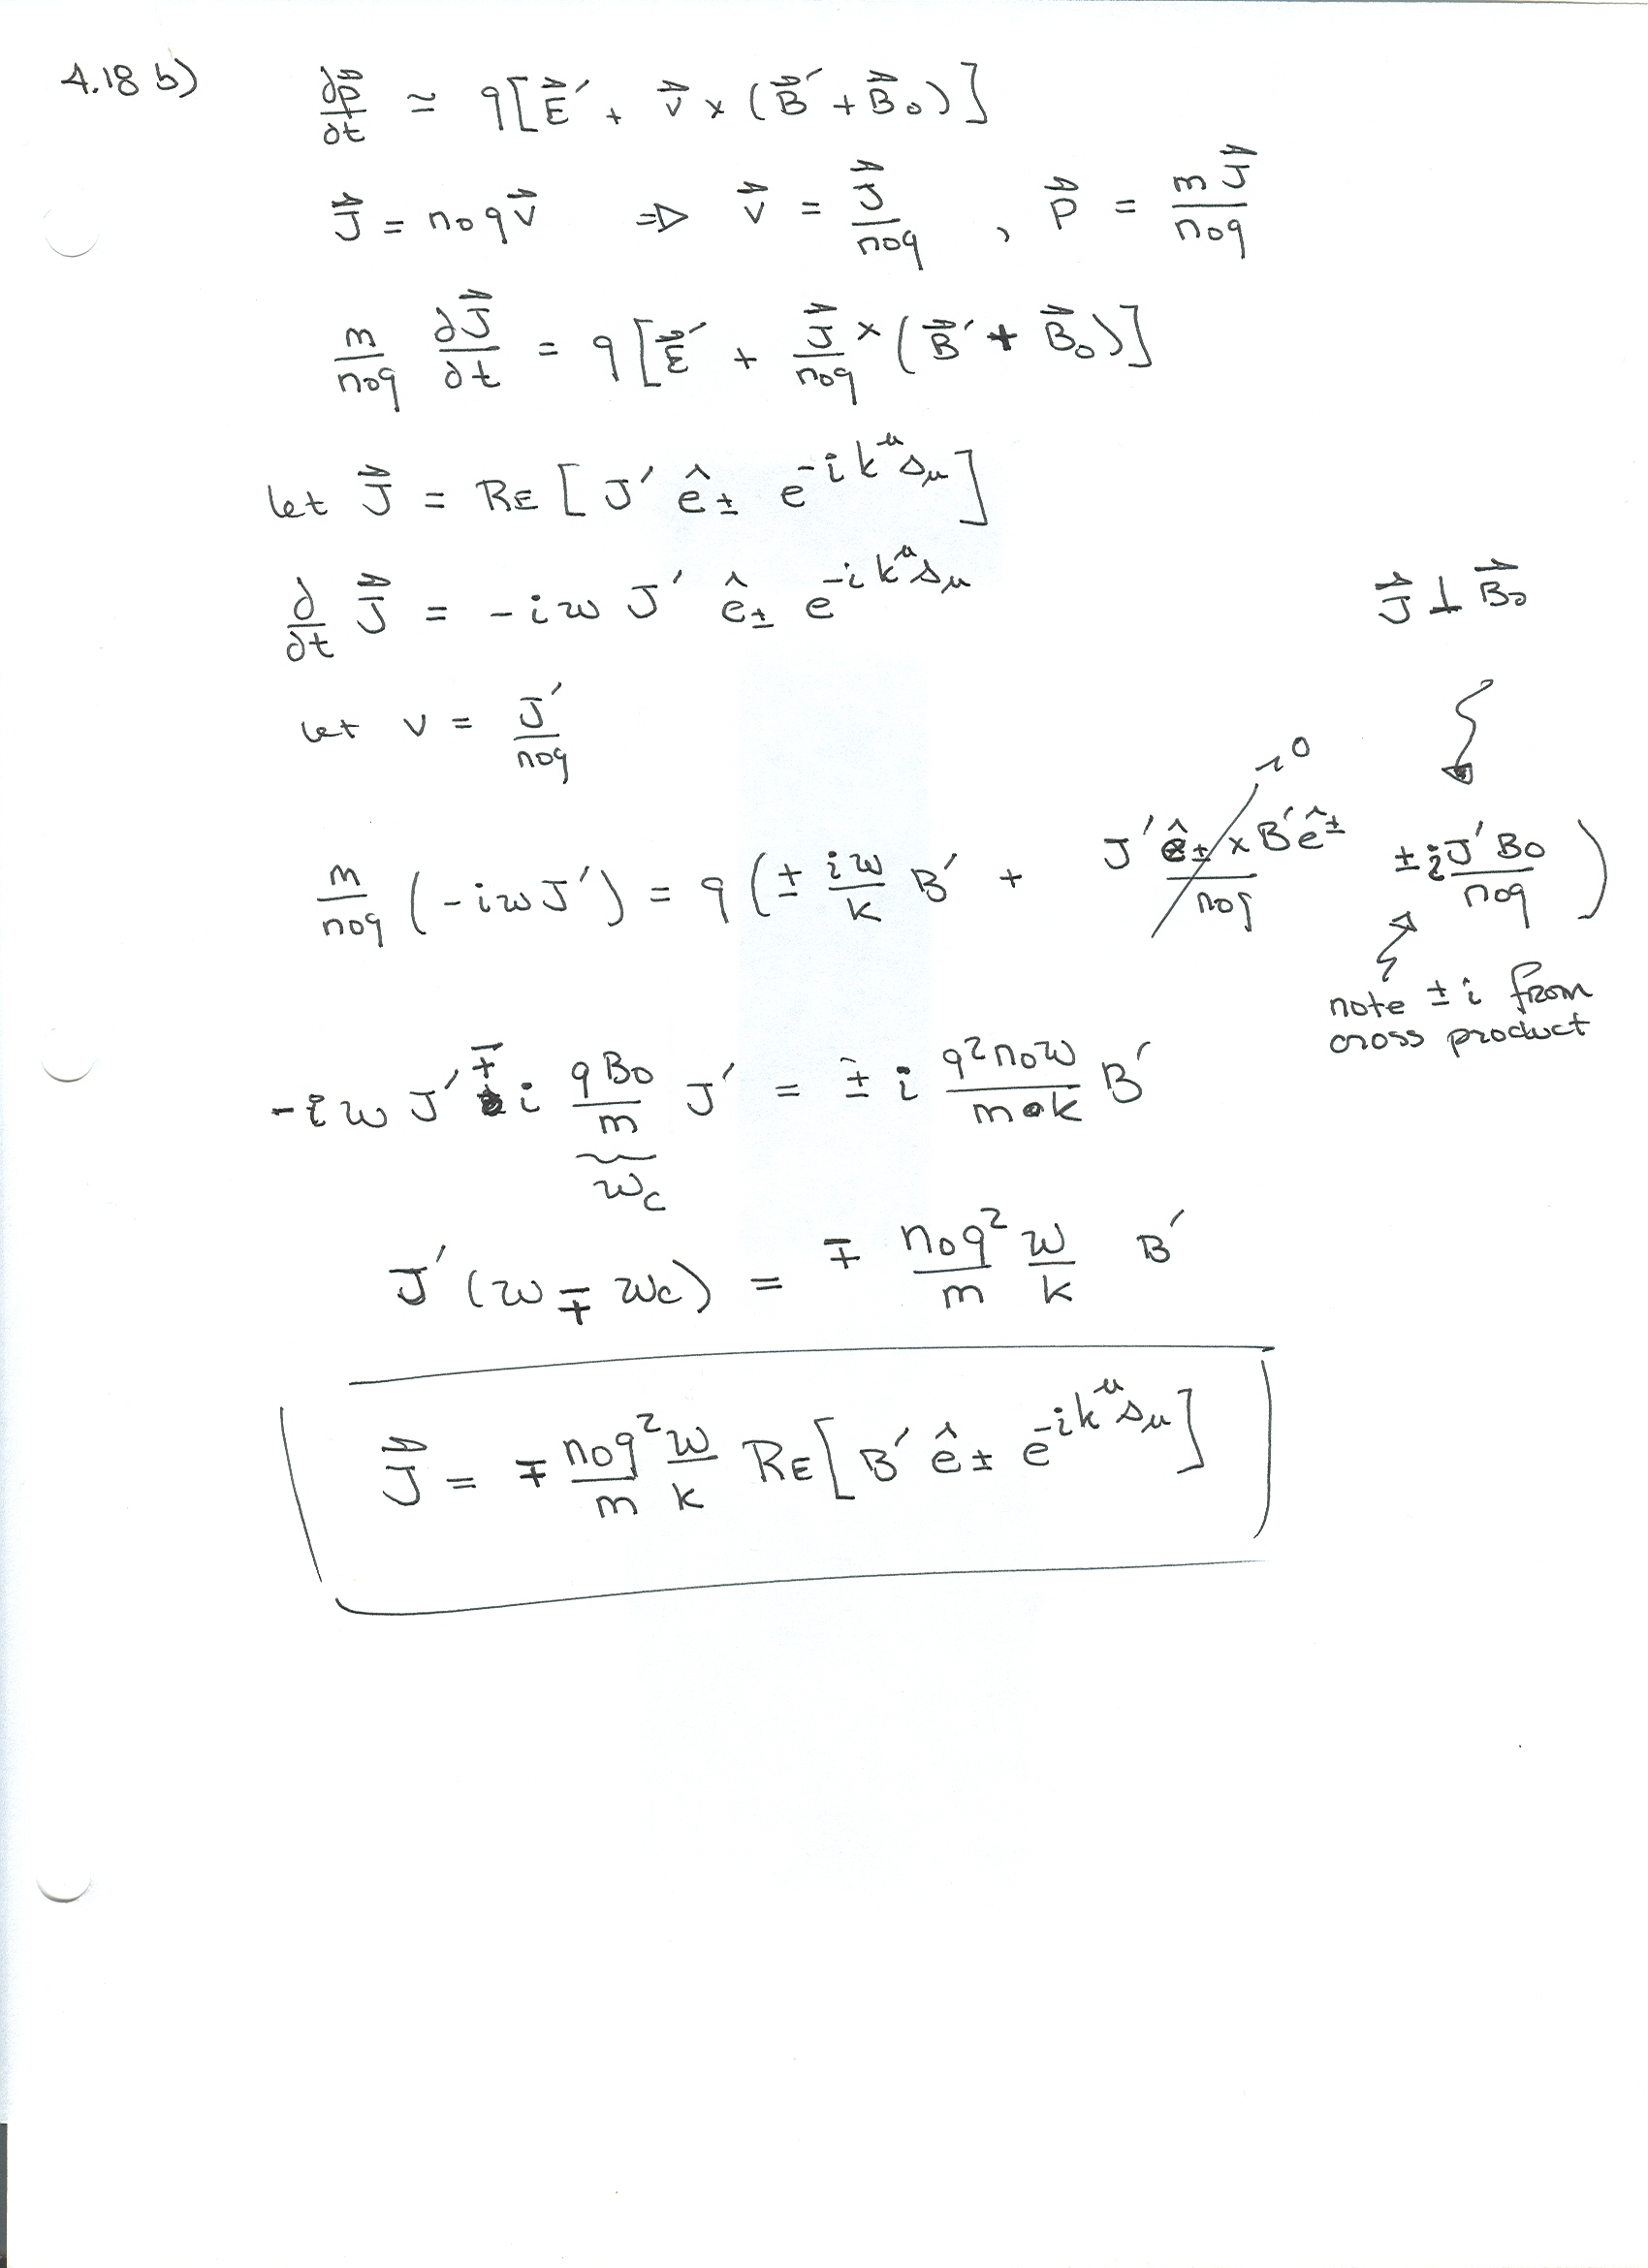 4.18 b) ∂p⃗/∂t ≃ q[E⃗′ + v⃗ × (B⃗′ + B⃗₀)]
J⃗ = n₀qv⃗ ⇒ v⃗ = J⃗/n₀q , p⃗ = mJ⃗/n₀q
m/n₀q ∂J⃗/∂t = q[E⃗′ + J⃗/n₀q × (B⃗′ + B⃗₀)]
let J⃗ = RE[J′ ê± e^{-ik^μ s_μ}]
∂/∂t J⃗ = -iω J′ ê± e^{-ik^μ s_μ}
J⃗ ⊥ B⃗₀
let v = J′/n₀q
m/n₀q (-iωJ′) = q(± iω/k B′ + J′ê± × B′ê±/n₀q → 0 ± iJ′B₀/n₀q)
note ± i from
cross product
-iω J′ ∓ i qB₀/m J′ = ± i q²n₀ω/mk B′
ω_c
J′(ω ∓ ω_c) = ∓ n₀q²/m ω/k B′
J⃗ = ∓ n₀q²/m ω/k RE[B′ ê± e^{-ik^μ s_μ}]